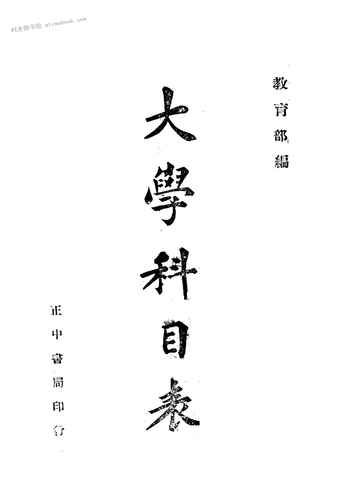 教育部編
大學科目表
正中書局印行